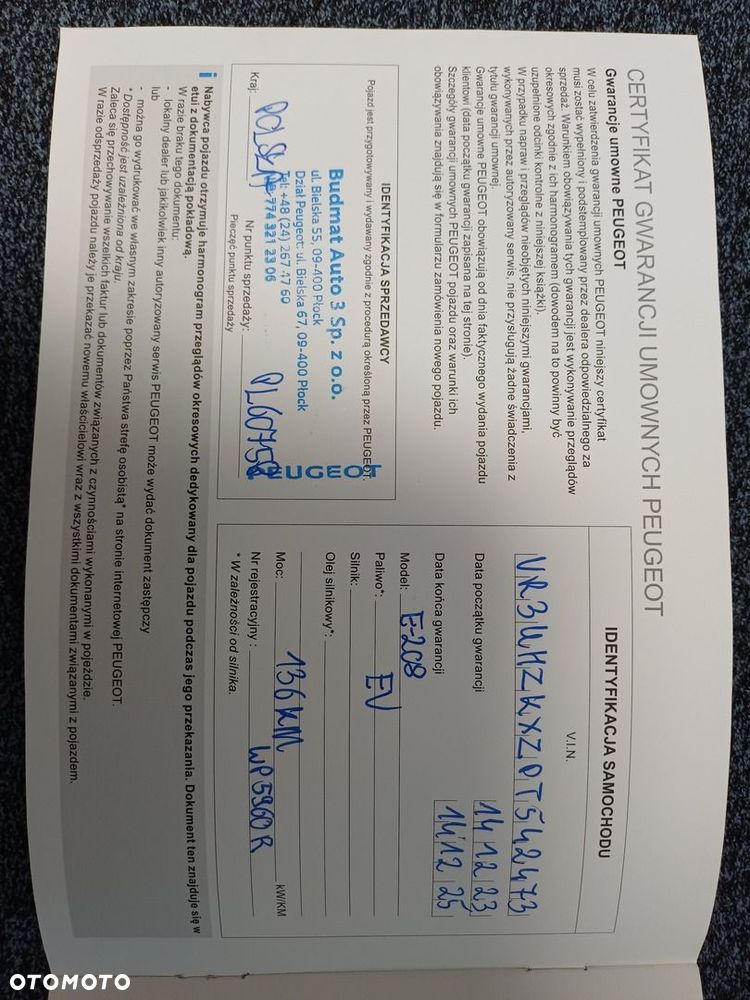 CERTYFIKAT GWARANCJI UMOWNYCH PEUGEOT
Gwarancje umowne PEUGEOT
W celu zatwierdzenia gwarancji umownych PEUGEOT niniejszy certyfikat
musi zostać wypełniony i podstemplowany przez dealera odpowiedzialnego za
sprzedaż. Warunkiem obowiązywania tych gwarancji jest wykonywanie przeglądów
okresowych zgodnie z ich harmonogramem (dowodem na to powinny być
uzupełnione odcinki kontrolne z niniejszej książki).
W przypadku napraw i przeglądów nieobjętych niniejszymi gwarancjami,
wykonywanych przez autoryzowany serwis, nie przysługują żadne świadczenia z
tytułu gwarancji umownej.
Gwarancje umowne PEUGEOT obowiązują od dnia faktycznego wydania pojazdu
klientowi (data początku gwarancji zapisana na tej stronie).
Szczegóły gwarancji umownych PEUGEOT pojazdu oraz warunki ich
obowiązywania znajdują się w formularzu zamówienia nowego pojazdu.
IDENTYFIKACJA SPRZEDAWCY
Pojazd jest przygotowywany i wydawany zgodnie z procedurą określoną przez PEUGEOT.
Budmat Auto 3 Sp. z o.o.
ul. Bielska 55, 09-400 Płock
Dział Peugeot: ul. Bielska 67, 09-400 Płock
Tel: +48 (24) 267 47 60
774 321 23 06
PEUGEOT
Kraj: POLSKA
Nr punktu sprzedaży: PL60752
Pieczęć punktu sprzedaży
IDENTYFIKACJA SAMOCHODU
V.I.N.
VR3UHZKXZPT542473
Data początku gwarancji 14 12 23
Data końca gwarancji 14 12 25
Model: E-208
Paliwo*: EV
Silnik:
Olej silnikowy*:
Moc: 136 KM kW/KM
Nr rejestracyjny : WP5960R
* W zależności od silnika.
i
Nabywca pojazdu otrzymuje harmonogram przeglądów okresowych dedykowany dla pojazdu podczas jego przekazania. Dokument ten znajduje się w
etui z dokumentacją pokładową.
W razie braku tego dokumentu:
- lokalny dealer lub jakikolwiek inny autoryzowany serwis PEUGEOT może wydać dokument zastępczy
lub
- można go wydrukować we własnym zakresie poprzez Państwa strefę osobistą* na stronie internetowej PEUGEOT.
* Dostępność jest uzależniona od kraju.
Zaleca się przechowywanie wszelkich faktur lub dokumentów związanych z czynnościami wykonanymi w pojeździe.
W razie odsprzedaży pojazdu należy je przekazać nowemu właścicielowi wraz z wszystkimi dokumentami związanymi z pojazdem.
OTOMOTO